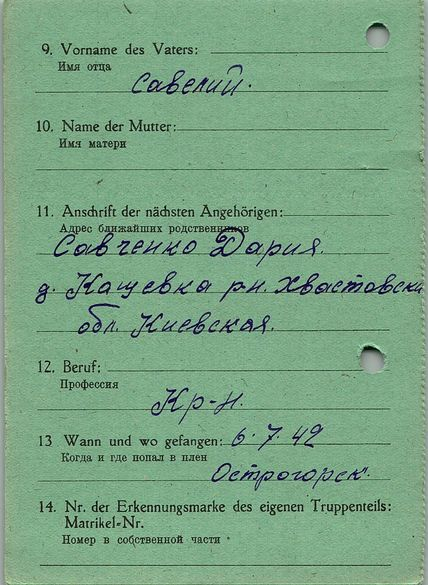 9. Vorname des Vaters:
Имя отца
Савелий.
10. Name der Mutter:
Имя матери
11. Anschrift der nächsten Angehörigen:
Адрес ближайших родственников
Савченко Дария.
д. Кащевка р-н. Хвастовски
обл. Киевская.
12. Beruf:
Профессия
Кр-н.
13 Wann und wo gefangen: 6.7.42
Когда и где попал в плен
Острогорск.
14. Nr. der Erkennungsmarke des eigenen Truppenteils:
Matrikel-Nr.
Номер в собственной части